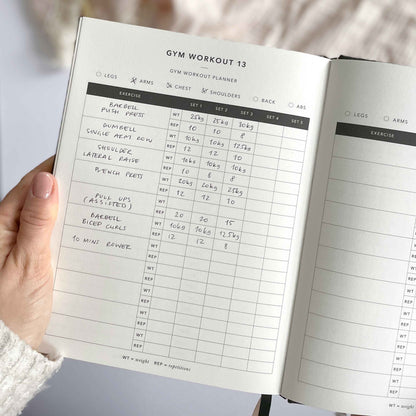 GYM WORKOUT 13
GYM WORKOUT PLANNER
LEGS ARMS CHEST SHOULDERS BACK ABS
EXERCISE SET 1 SET 2 SET 3 SET 4 SET 5
BARBELL PUSH PRESS WT 25kg 25kg 30kg
REP 10 10 8
DUMBELL SINGLE ARM ROW WT 10kg 10kg 12.5kg
REP 12 12 10
SHOULDER LATERAL RAISE WT 10kg 10kg 10kg
REP 10 8 8
BENCH PRESS WT 20kg 20kg 25kg
REP 12 12 10
PULL UPS (ASSISTED) WT
REP 20 20 15
BARBELL BICEP CURLS WT 10kg 10kg 12.5kg
REP 12 12 8
10 MINS ROWER WT
REP
WT
REP
WT
REP
WT
REP
WT
REP
WT = weight REP = repetitions
LEGS ARMS
EXERCISE
WT = weight